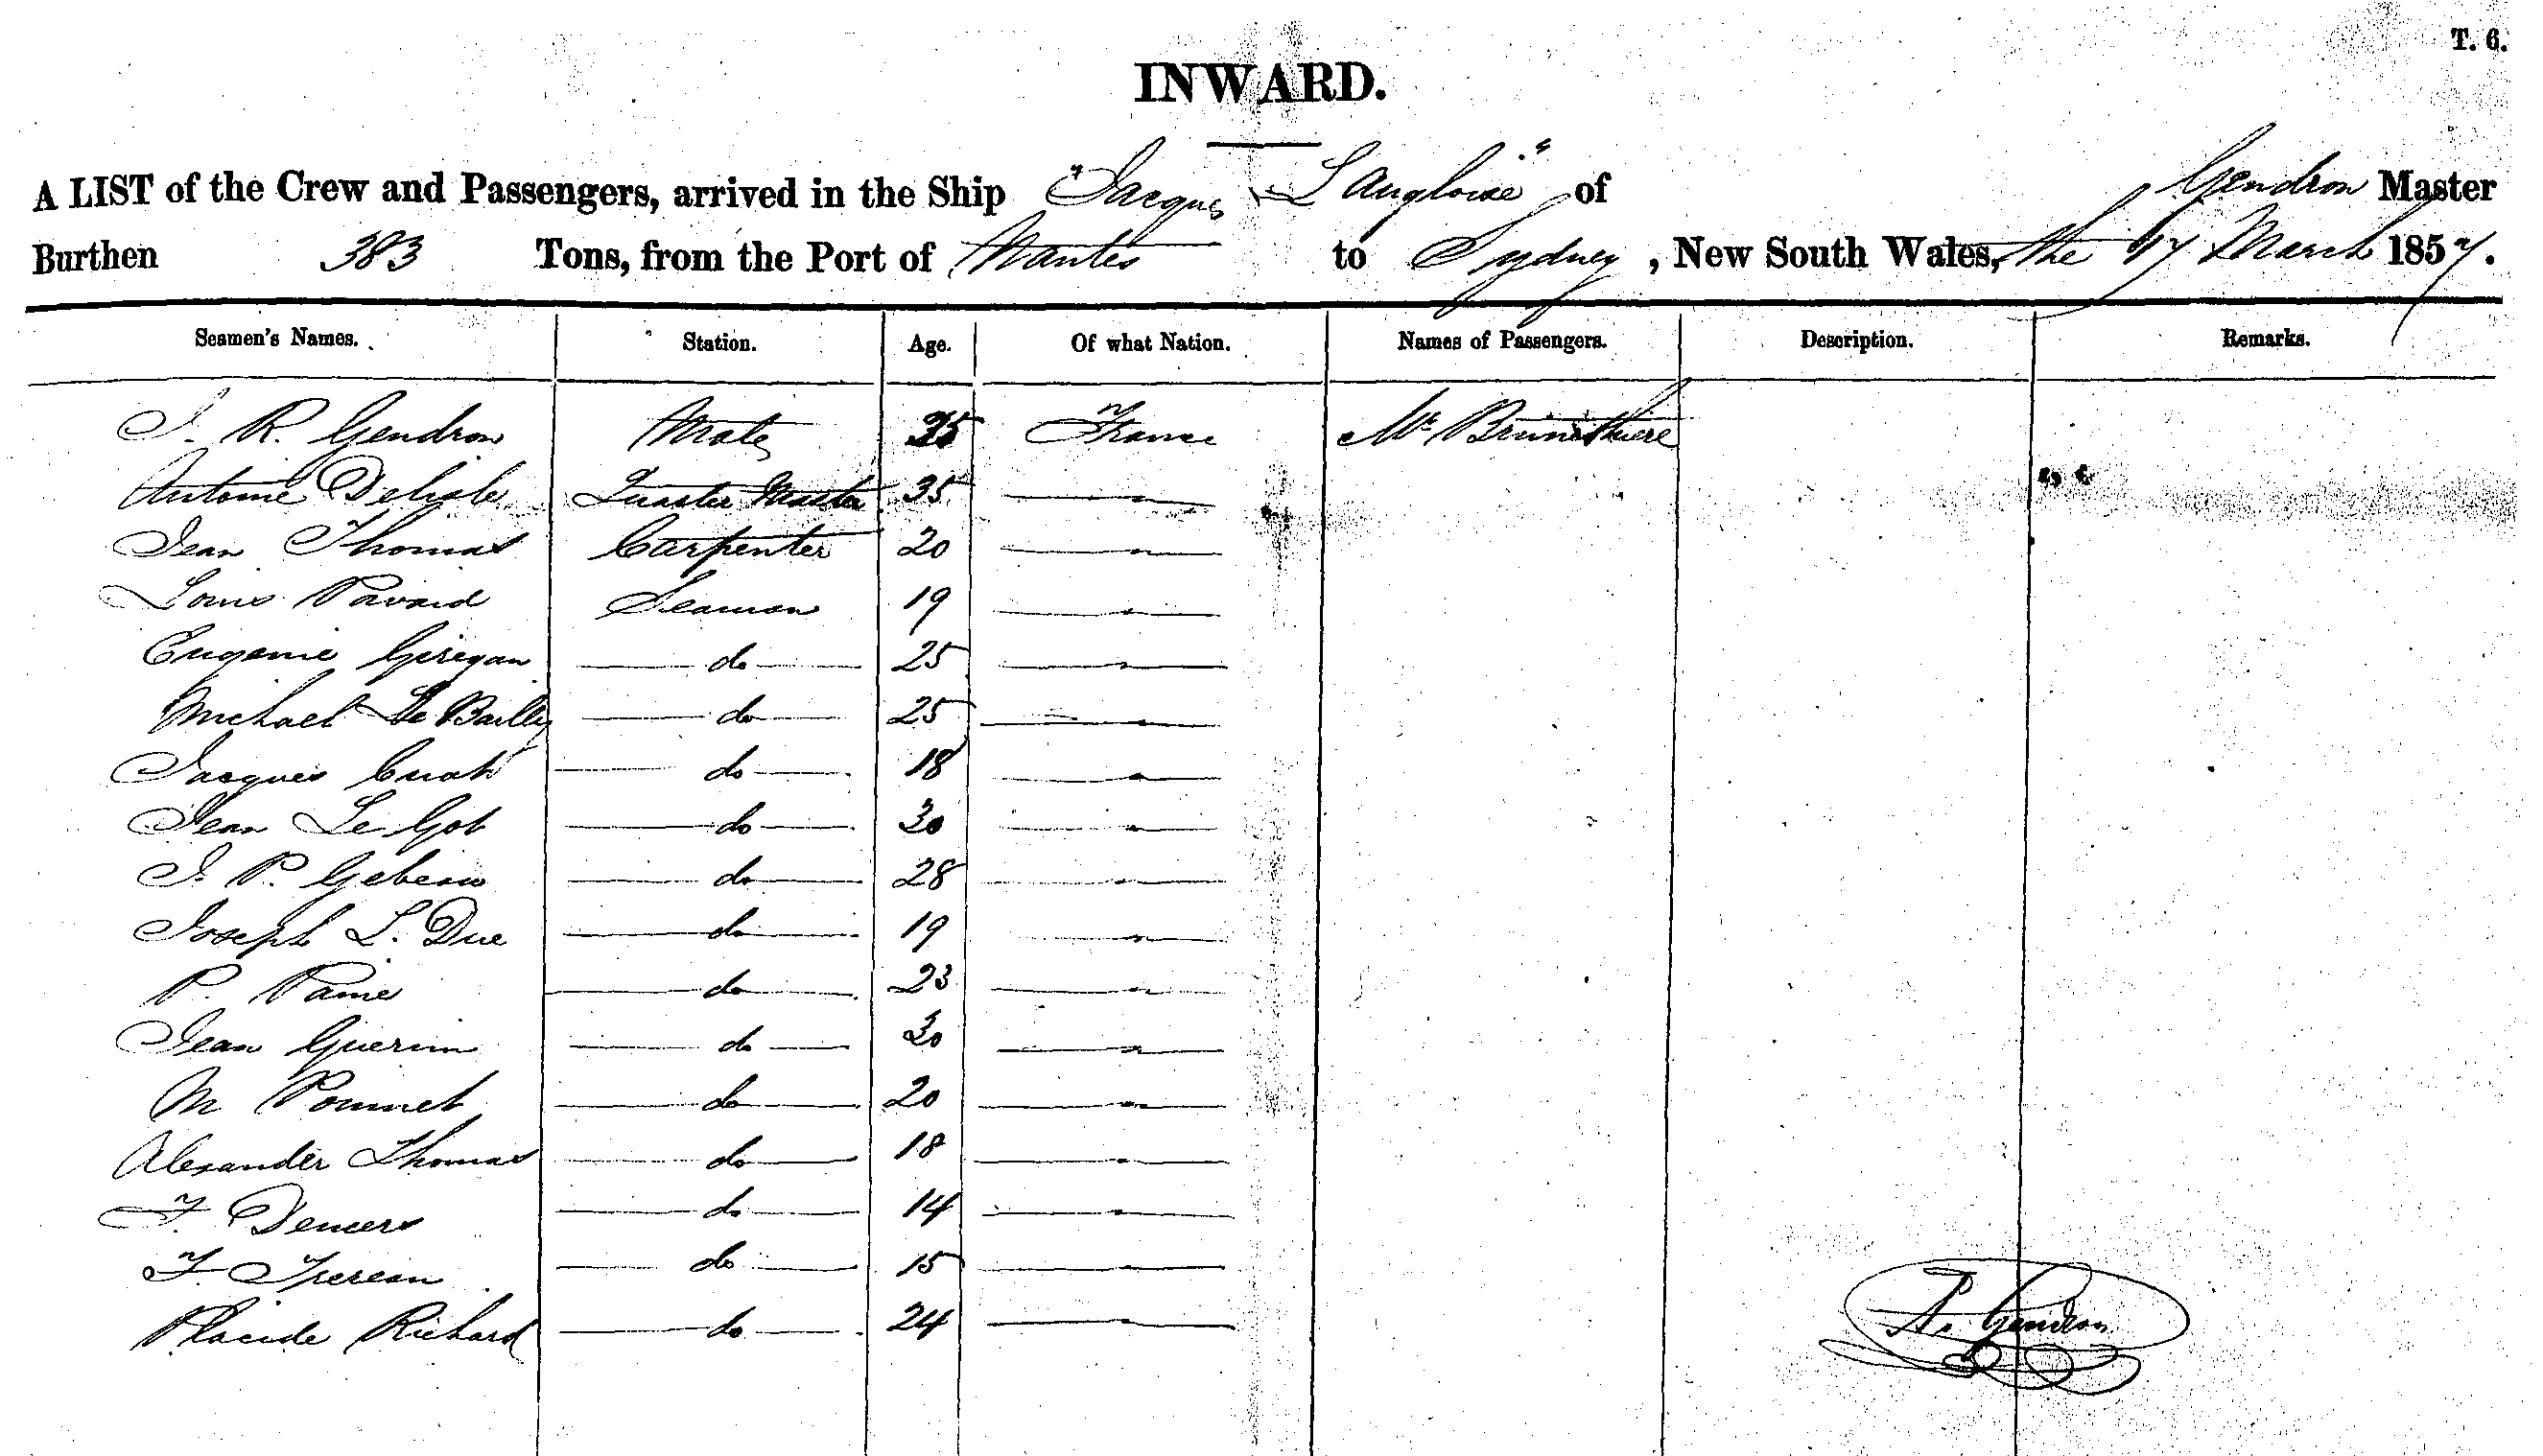 T. 6.
INWARD.
A LIST of the Crew and Passengers, arrived in the Ship "Jacques L Angloise" of Gendron Master
Burthen 383 Tons, from the Port of Nantes to Sydney, New South Wales, the 17 March 1857.
Seamen's Names. Station. Age. Of what Nation. Names of Passengers. Description. Remarks.
J. R. Gendron Mate 35 France Mr
Antoine Delisle Quarter Master 35 "
Jean Thomas Carpenter 20 "
Louis Pavard Seaman 19 "
Eugenie do 25 "
Michael Le Bailly do 25 "
Jacques do 18 "
Jean Le Gob do 30 "
J. P. do 28 "
Joseph L. Due do 19 "
P. do 23 "
Jean Guerin do 30 "
M do 20 "
Alexander Thomas do 18 "
F. do 14 "
F. do 15 "
Placide Richard do 24
A. Gendron